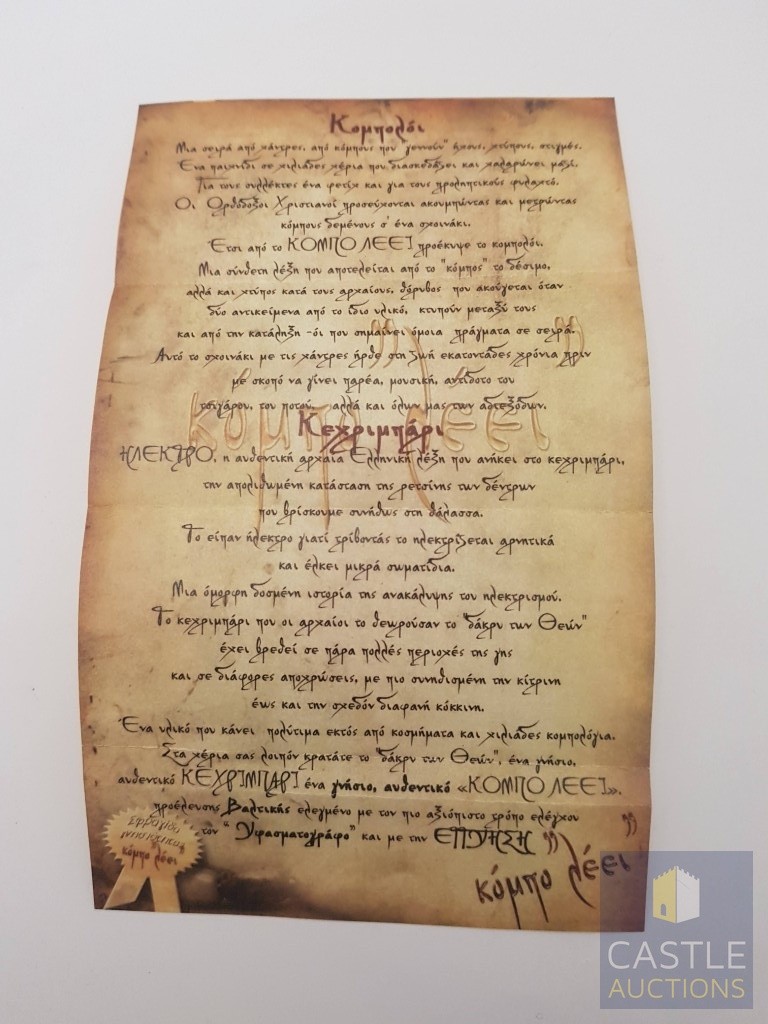 Κομπολόι
Μια σειρά από χάντρες, από κόμπους που "γεννούν" ήχους, χτύπους, στιγμές.
Ένα παιχνίδι σε χιλιάδες χέρια που διασκεδάζει και χαλαρώνει μαζί.
Για τους συλλέκτες ένα φετίχ και για τους προληπτικούς φυλαχτό.
Οι Ορθόδοξοι Χριστιανοί προσεύχονται ακουμπώντας και μετρώντας
κόμπους δεμένους σ' ένα σχοινάκι.
Έτσι από το ΚΟΜΠΟ ΛΕΕΙ προέκυψε το κομπολόι.
Μια σύνθετη λέξη που αποτελείται από το "κόμπος" το δέσιμο,
αλλά και χτύπος κατά τους αρχαίους, θόρυβος που ακούγεται όταν
δύο αντικείμενα από το ίδιο υλικό, κτυπούν μεταξύ τους
και από την κατάληξη -όι που σημαίνει όμοια πράγματα σε σειρά.
Αυτό το σχοινάκι με τις χάντρες ήρθε στη ζωή εκατοντάδες χρόνια πριν
με σκοπό να γίνει παρέα, μουσική, αντίδοτο του
τσιγάρου, του ποτού, αλλά και όλων μας των αδιεξόδων.
κόμπο λέει
Κεχριμπάρι
ΗΛΕΚΤΡΟ, η αυθεντική αρχαία Ελληνική λέξη που ανήκει στο κεχριμπάρι,
την απολιθωμένη κατάσταση της ρετσίνης των δέντρων
που βρίσκουμε συνήθως στη θάλασσα.
Το είπαν ήλεκτρο γιατί τρίβοντάς το ηλεκτρίζεται αρνητικά
και έλκει μικρά σωματίδια.
Μια όμορφη δοσμένη ιστορία της ανακάλυψης του ηλεκτρισμού.
Το κεχριμπάρι που οι αρχαίοι το θεωρούσαν το "δάκρυ των Θεών"
έχει βρεθεί σε πάρα πολλές περιοχές της γης
και σε διάφορες αποχρώσεις, με πιο συνηθισμένη την κίτρινη
έως και την σχεδόν διαφανή κόκκινη.
Ένα υλικό που κάνει πολύτιμα εκτός από κοσμήματα και χιλιάδες κομπολόγια.
Στα χέρια σας λοιπόν κρατάτε το "δάκρυ των Θεών", ένα γνήσιο,
αυθεντικό ΚΕΧΡΙΜΠΑΡΙ ένα γνήσιο, αυθεντικό «ΚΟΜΠΟ ΛΕΕΙ».
προέλευσης Βαλτικής ελεγμένο με τον πιο αξιόπιστο τρόπο ελέγχου
τον " Υφασματογράφο" και με την ΕΓΓΥΗΣΗ
"κόμπο λέει"
Σφραγίδα
γνησιότητας
κόμπο λέει
CASTLE
AUCTIONS